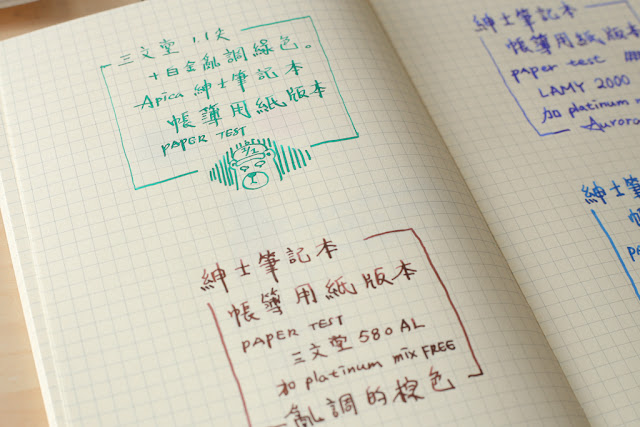 三文堂 1.1尖
+白金亂調綠色。
Apica 紳士筆記本
帳簿用紙版本
PAPER TEST
紳士筆記本
帳簿用紙版本
PAPER TEST
三文堂 580 AL
和 platinum mix FREE
亂調的棕色
紳士筆記本
帳簿用紙版本
paper test
LAMY 2000
加 platinum
Aurora
紳士筆